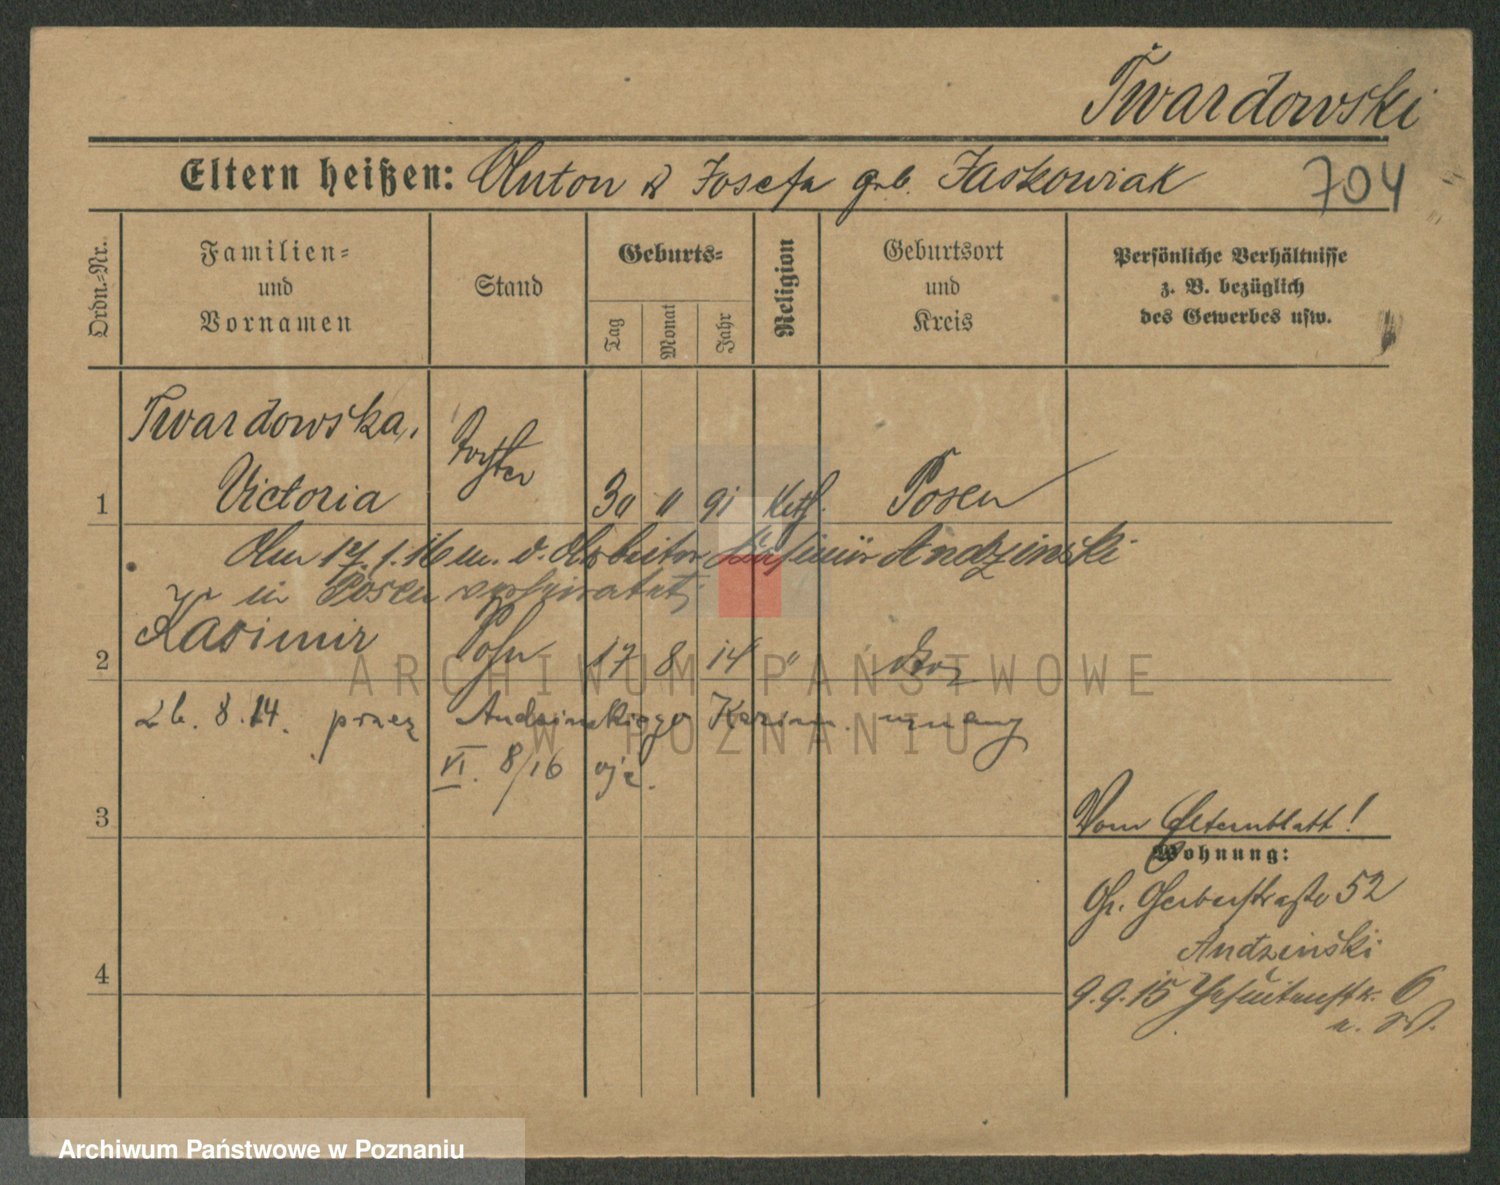 Twardowski
Eltern heißen: Anton & Josefa geb. Jaskowiak 704
Ordn.-Nr.
Familien=
und
Vornamen
Stand
Geburts=
Tag
Monat
Jahr
Religion
Geburtsort
und
Kreis
Persönliche Verhältnisse
z. B. bezüglich
des Gewerbes usw.
Twardowska,
1 Victoria Tochter 30 11 91 Kath. Posen
Am 17.1.16 m. d. Arbeiter Kasimir Andzinski
in Posen verheiratet
2 Kasimir Sohn 17 8 14 "
26. 8. 14. przez Andzinskiego Kazim. uznany
VI. 8/16
3
Vom Elternblatt!
Wohnung:
Gr. Gerberstraße 52
Andzinski
4
9.9.15 Jesuitenstr. 6
ARCHIWUM PAŃSTWOWE
W POZNANIU
Archiwum Państwowe w Poznaniu